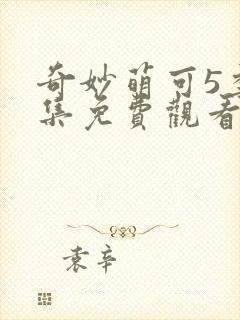 奇妙萌可5季
集免費觀看
袁辛